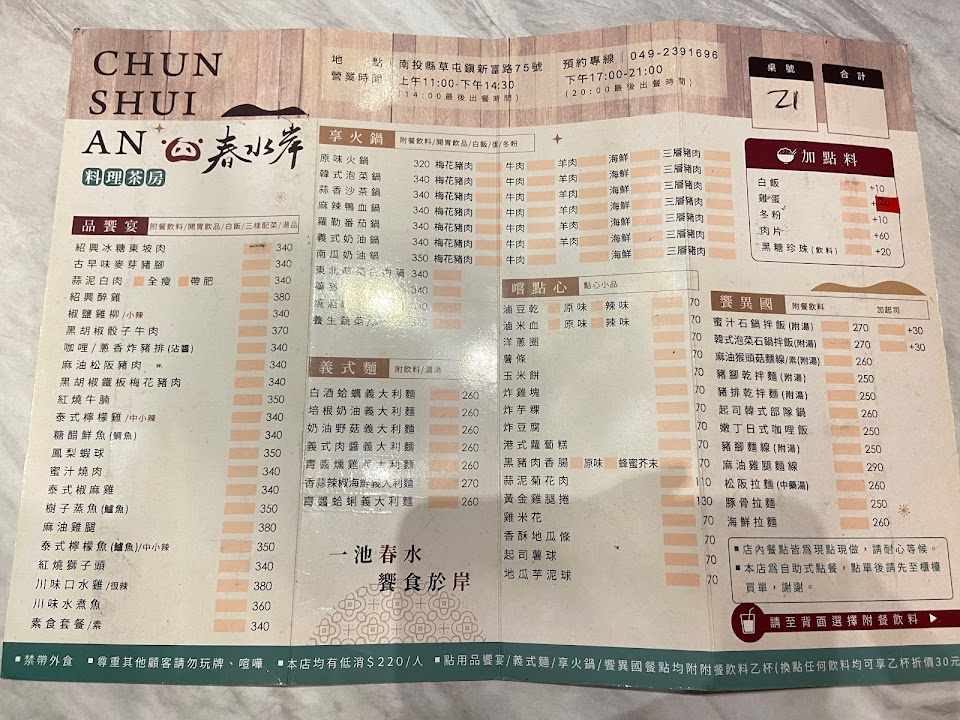 CHUN
SHUI
AN
春水岸
料理茶房
地 點 南投縣草屯鎮新富路75號
營業時間 上午11:00-下午14:30
(14:00最後出餐時間)
預約專線 049-2391696
下午17:00-21:00
(20:00最後出餐時間)
桌號
21
合計
品饗宴 附餐飲料/開胃飲品/白飯/三樣配菜/湯品
紹興冰糖東坡肉 340
古早味麥芽豬腳 340
蒜泥白肉 全瘦 帶肥 340
紹興醉雞 380
椒鹽雞柳/小辣 340
黑胡椒骰子牛肉 370
咖哩/蔥香炸豬排(沾醬) 340
麻油松阪豬肉 340
黑胡椒鐵板梅花豬肉 340
紅燒牛腩 350
泰式檸檬雞/中小辣 340
糖醋鮮魚(鯛魚) 340
鳳梨蝦球 350
蜜汁燒肉 340
泰式椒麻雞 340
樹子蒸魚(鱸魚) 350
麻油雞腿 380
泰式檸檬魚(鱸魚)/中小辣 350
紅燒獅子頭 340
川味口水雞/很辣 380
川味水煮魚 360
素食套餐/素 340
享火鍋 附餐飲料/開胃飲品/白飯/蛋/冬粉
原味火鍋 320 梅花豬肉 牛肉 羊肉 海鮮 三層豬肉
韓式泡菜鍋 340 梅花豬肉 牛肉 羊肉 海鮮 三層豬肉
蒜香沙茶鍋 340 梅花豬肉 牛肉 羊肉 海鮮 三層豬肉
麻辣鴨血鍋 340 梅花豬肉 牛肉 羊肉 海鮮 三層豬肉
羅勒番茄鍋 340 梅花豬肉 牛肉 羊肉 海鮮 三層豬肉
義式奶油鍋 340 梅花豬肉 牛肉 羊肉 海鮮 三層豬肉
南瓜奶油鍋 350 梅花豬肉 牛肉 海鮮 三層豬肉
東北 鍋 340
養生蔬菜
義式麵 附飲料/濃湯
白酒蛤蠣義大利麵 260
培根奶油義大利麵 260
奶油野菇義大利麵 260
義式肉醬義大利麵 260
青醬燻雞義大利麵 260
香蒜辣椒海鮮義大利麵 270
青醬蛤蜊義大利麵 260
一池春水
饗食於岸
嚐點心 點心小品
滷豆乾 原味 辣味 70
滷米血 原味 辣味 70
洋蔥圈 70
薯條 70
玉米餅 70
炸雞塊 70
炸芋粿 70
炸豆腐 70
港式蘿蔔糕 70
黑豬肉香腸 原味 蜂蜜芥末 70
蒜泥菊花肉 110
黃金雞腿捲 130
雞米花 70
香酥地瓜條 70
起司薯球 70
地瓜芋泥球 70
加點料
白飯 +10
雞蛋 +20
冬粉 +10
肉片 +60
黑糖珍珠(飲料) +20
饗異國 附餐飲料 加起司
蜜汁石鍋拌飯(附湯) 270 +30
韓式泡菜石鍋拌飯(附湯) 270 +30
麻油猴頭菇麵線/素(附湯) 260
豬腳乾拌麵(附湯) 250
豬排乾拌麵(附湯) 250
起司韓式部隊鍋 250
嫩丁日式咖哩飯 250
豬腳麵線(附湯) 250
麻油雞腿麵線 290
松阪拉麵(中藥湯) 260
豚骨拉麵 250
海鮮拉麵 260
▪店內餐點皆為現點現做，請耐心等候。
▪本店為自助式點餐，點單後請先至櫃檯
買單，謝謝。
請至背面選擇附餐飲料 ▶
▪禁帶外食 ▪尊重其他顧客請勿玩牌、喧嘩 ▪本店均有低消$220/人 ▪點用品饗宴/義式麵/享火鍋/饗異國餐點均附附餐飲料乙杯(換點任何飲料均可享乙杯折價30元